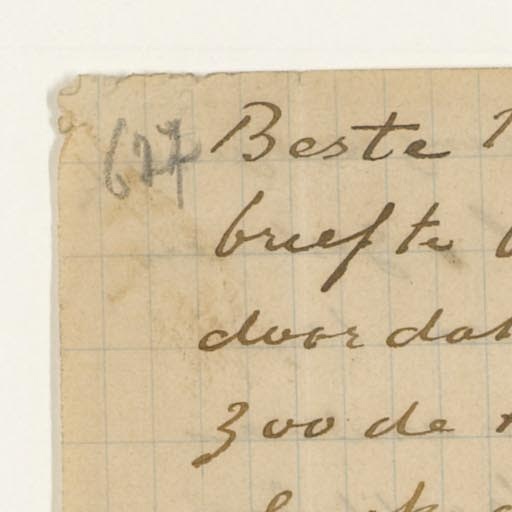 677 Beste
briefte
door dat
zoo de